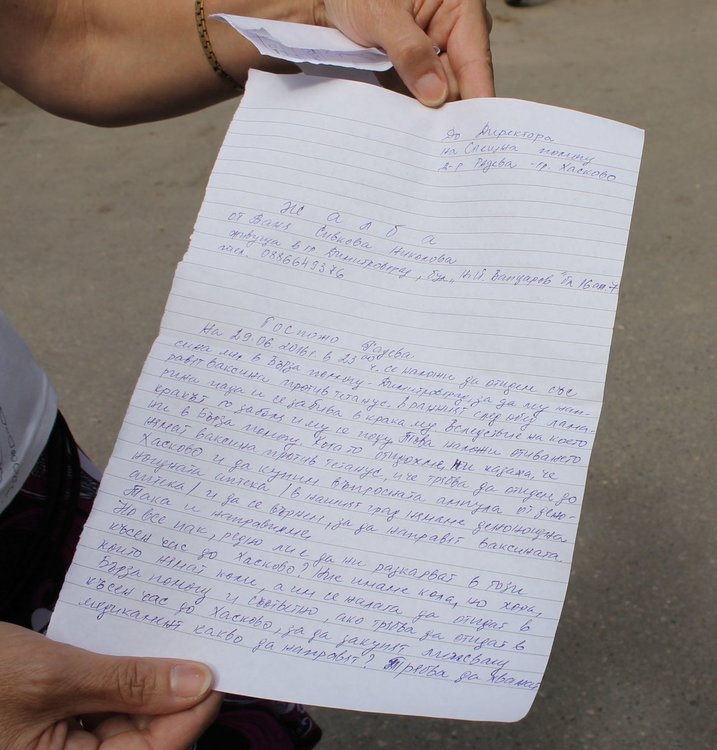 До Директора
на Спешна помощ
д-р Радева - гр. Хасково
Ж а л б а
от Ваня Сивкова Николова
живуща в гр. Димитровград, бул. "Н.Й. Вапцаров" бл. 16 ап. 7
тел. 0886649376
Госпожо Радева
На 29.06.2016 г. в 23 00 ч. се наложи да отидем със
сина ми в Бърза помощ - Димитровград, за да му нап-
равят ваксина против тетанус. В ранният след обяд лама-
рина пада и се забива в крака му вследствие на което
кракът го заболя и му се поду. Това наложи отиването
ни в Бърза помощ. Когато отидохме, ни казаха, че
нямат ваксина против тетанус, и че трябва да отидем до
Хасково и да купим въпросната ампула от дено-
нощната аптека / в нашият град нямаме денонощна
аптека / и да се върнем, за да направят ваксината.
Така и направихме.
Но все пак, редно ли е да ни разкарват в този
късен час до Хасково? Ние имаме кола, но хора,
които нямат коли, а им се налага да отидат в
Бърза помощ и съответно, ако трябва да отидат в
късен час до Хасково, за да закупят липсващ
медикамент какво да направят? Трябва да хванат